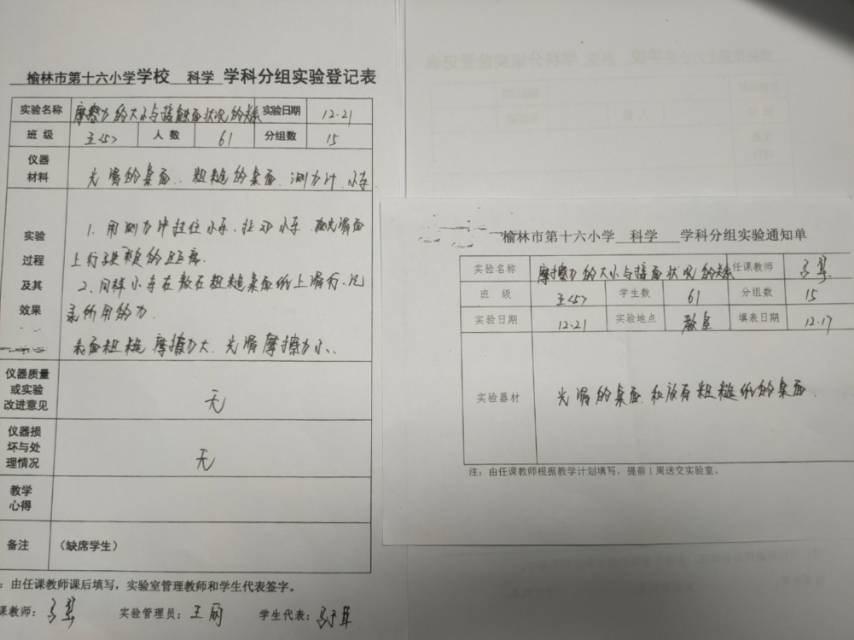 榆林市第十六小学学校 科学 学科分组实验登记表
实验名称 摩擦力的大小与接触面状况的关系 实验日期 12.21
班 级 五<5> 人 数 61 分组数 15
仪器材料 光滑的桌面、粗糙的桌面、测力计、小车
实验过程及其效果
1、用测力计拉住小车、拉动小车
上行
2、同样小车在
录所用的力
表面粗糙 摩擦力大、光滑摩擦力小、
仪器质量或实验改进意见 无
仪器损坏与处理情况 无
教学心得
备注 (缺席学生)
：由任课教师课后填写，实验室管理教师和学生代表签字。
课教师： 实验管理员：王丽 学生代表：
榆林市第十六小学 科学 学科分组实验通知单
实验名称 摩擦力的大小与接触面状况的关系 任课教师
班 级 五<5> 学生数 61 分组数 15
实验日期 12.21 实验地点 教室 填表日期 12.17
实验器材 光滑的桌面和放有粗糙纸的桌面
注：由任课教师根据教学计划填写，提前1周送交实验室。